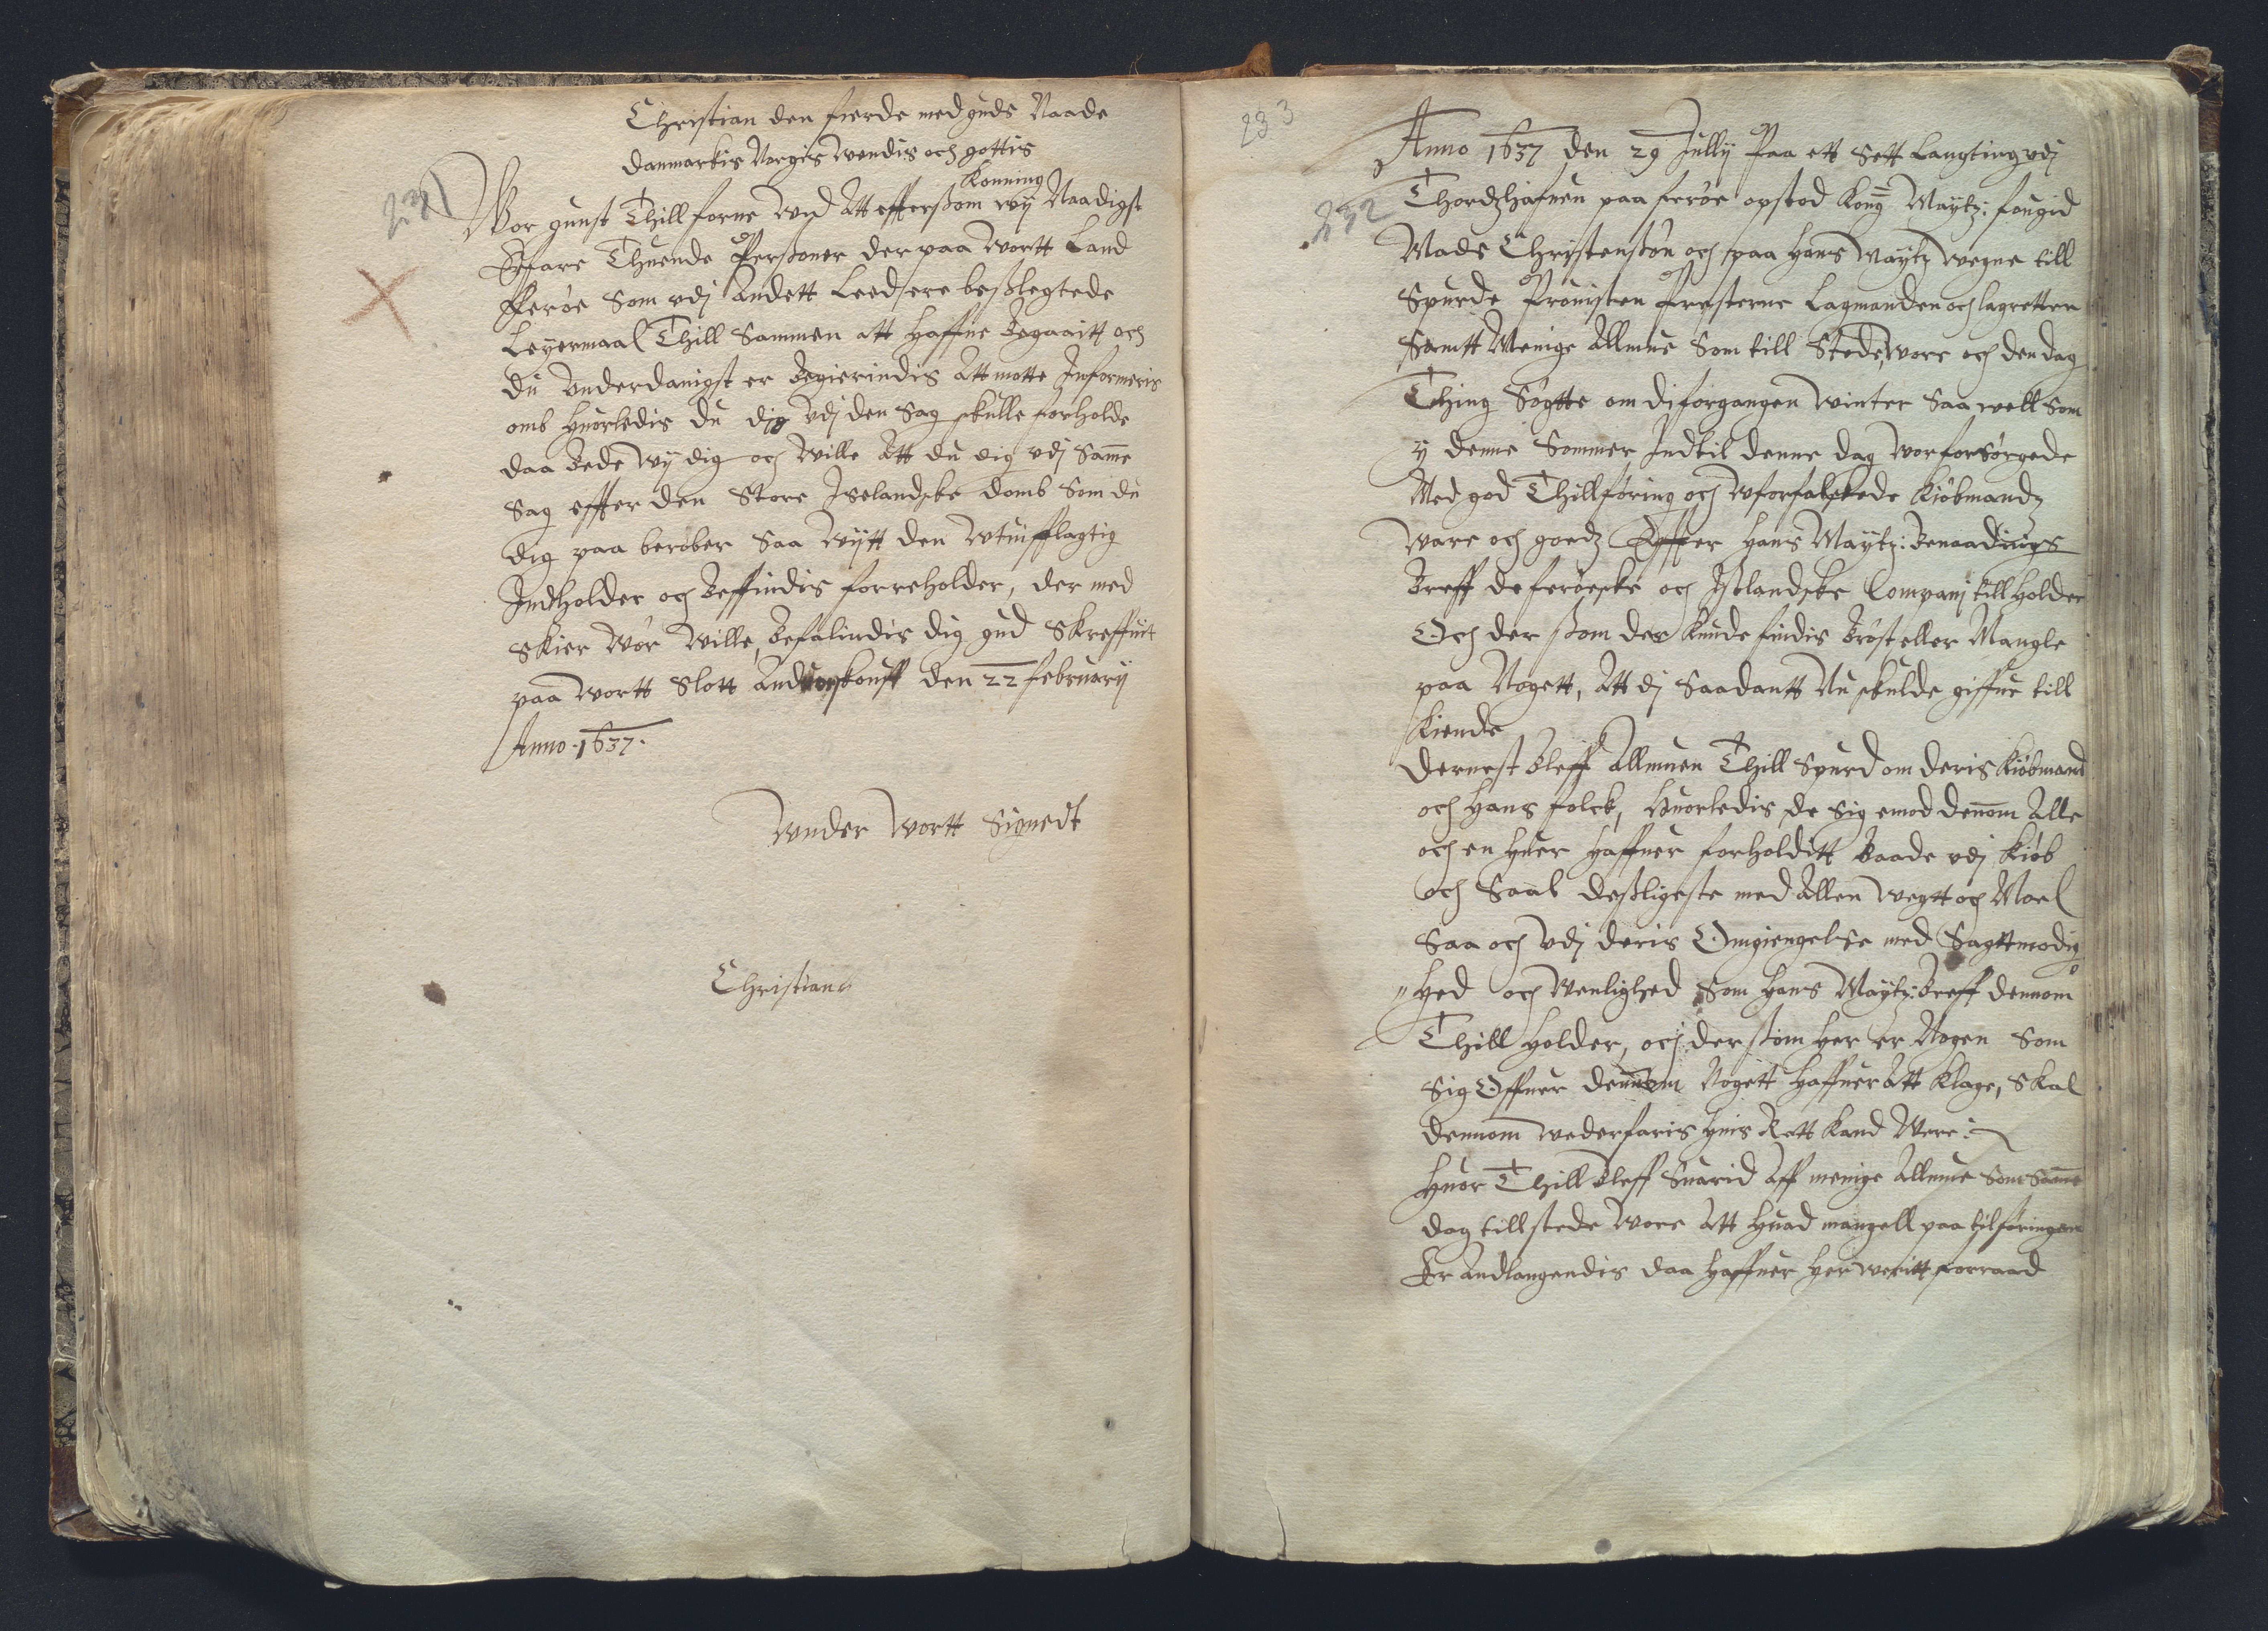 Christian den fierde med guds Naade
danmarkis Norgis Wendis och gottis
Konning
231
Wor gunst Thill forne Wid Att effterßom wij Naadigst
Erfare Thuende Perßoner der paa Wortt Land
Fferöe Som vdj Andett Leed ere beßlegtede
Leÿermaal Thill Sammen att Haffue Begaaitt och
du Vnderdanigst er Begierindis Att motte Informeris
omb Huorledis du dig Vdj den Sag skulle forholde
daa Bede Wij dig och Wille Att du dig vdj Samme
Sag effter den Store Iselandske domb Som du
dig paa berober Saa Wijtt den Wtuifflagtig
Indholder och Beffindis forreholder, der med
Skier Wor Wille, Befalindis dig gud Skreffuit
paa Wortt Slott Andtvorskouff den 22 february
Anno 1637.
Wnder Wortt Signedt
Christian
233
232
Anno 1637 den 29 Jullij Paa ett Sett Laugting vdj
Thordzhafuen paa feröe opstod Kong Maÿtz: fougid
Mads Christensön och paa Hans Maÿtz Wegne till
Spurde Prouisten Presterne Lagmanden och lagretten
Samtt Menige Allmue Som till Stede Wore och den dag
Thing Sögtte om di forgangen Winter Saa well Som
y denne Sommer Indtil denne dag Wor forsörgede
Med god Thillföring och Wforfalskede Kiöbmandz
Ware och goedz Effter Hans Maÿtz: Benaadings
Breff de feröeske och Islandske Compani till Holder
Och der ßom der Kunde findis Bröst eller Mangle
paa Nogett, Att dj Saadantt Nu skulde giffue till
Kiende
Dernest Bleff Allmuen Thill Spurd om deris Kiöbmand
och Hans folck, Huorledis de Sig emod dennom Alle
och en Huer Haffuer forholditt Baade vdj Kiöb
och Saal desßligeste med Allen Wegtt och Mael
Saa och Vdj deris Omgiengelse med Sagttmodig
"Hed och Wenlighed Som Hans Maÿtz: Breff dennom
Thill Holder, och der ßom Her er Nogen Som
Sig Offuer dennom Nogett Haffuer Att Klage, Skal
dennom Wederfaris Huis Rett Kand Were:
Huor Thill Bleff Suarid Aff menige Allmue Som Samme
dag till stede Wore Att Huad mangell paa tilföringen
Er Andlangendis daa Haffuer Her Weritt forraad